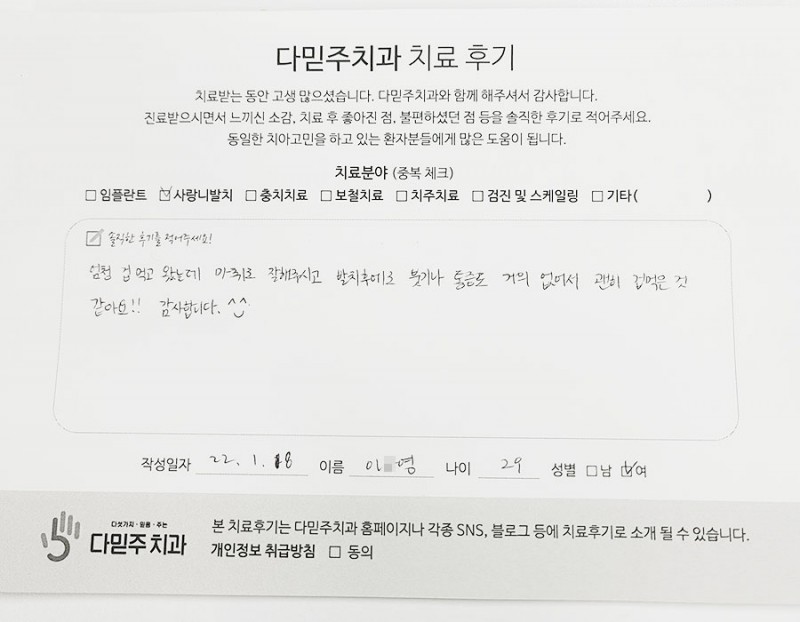 다믿주치과 치료 후기
치료받는 동안 고생 많으셨습니다. 다믿주치과와 함께 해주셔서 감사합니다.
진료받으시면서 느끼신 소감, 치료 후 좋아진 점, 불편하셨던 점 등을 솔직한 후기로 적어주세요.
동일한 치아고민을 하고 있는 환자분들에게 많은 도움이 됩니다.
치료분야 (중복 체크)
□ 임플란트 ☑ 사랑니발치 □ 충치치료 □ 보철치료 □ 치주치료 □ 검진 및 스케일링 □ 기타( )
솔직한 후기를 적어주세요!
엄청 겁먹고 왔는데 마취도 잘해주시고 발치후에도 붓기나 통증도 거의 없어서 괜히 겁먹은 것
같아요!! 감사합니다. ^^
작성일자 22. 1. 18 이름 이 영 나이 29 성별 □ 남 ☑ 여
다섯가지·믿음·주는
다믿주치과
본 치료후기는 다믿주치과 홈페이지나 각종 SNS, 블로그 등에 치료후기로 소개 될 수 있습니다.
개인정보 취급방침 □ 동의